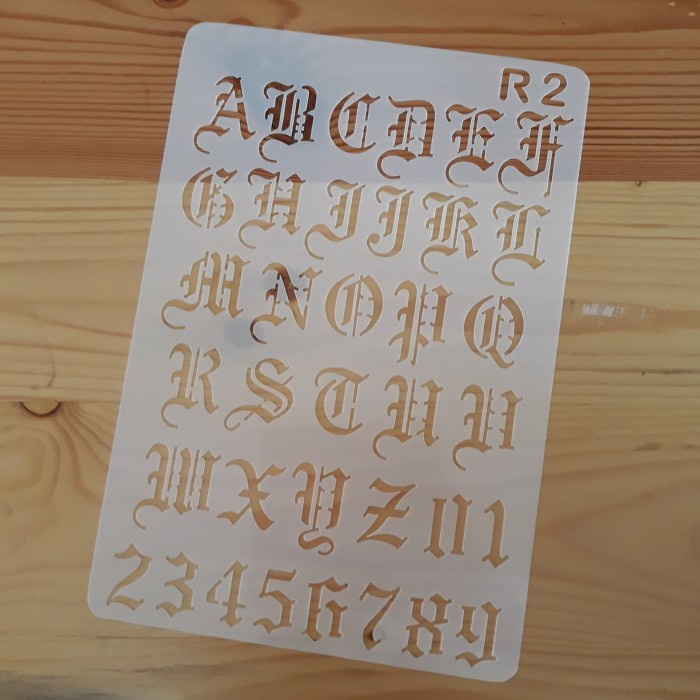 R2
A B C D E F
G H I J K L
M N O P Q
R S T U V
W X Y Z 0 1
2 3 4 5 6 7 8 9